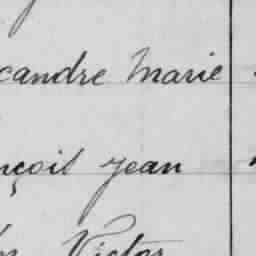 candre Marie
nçois Jean
Victor